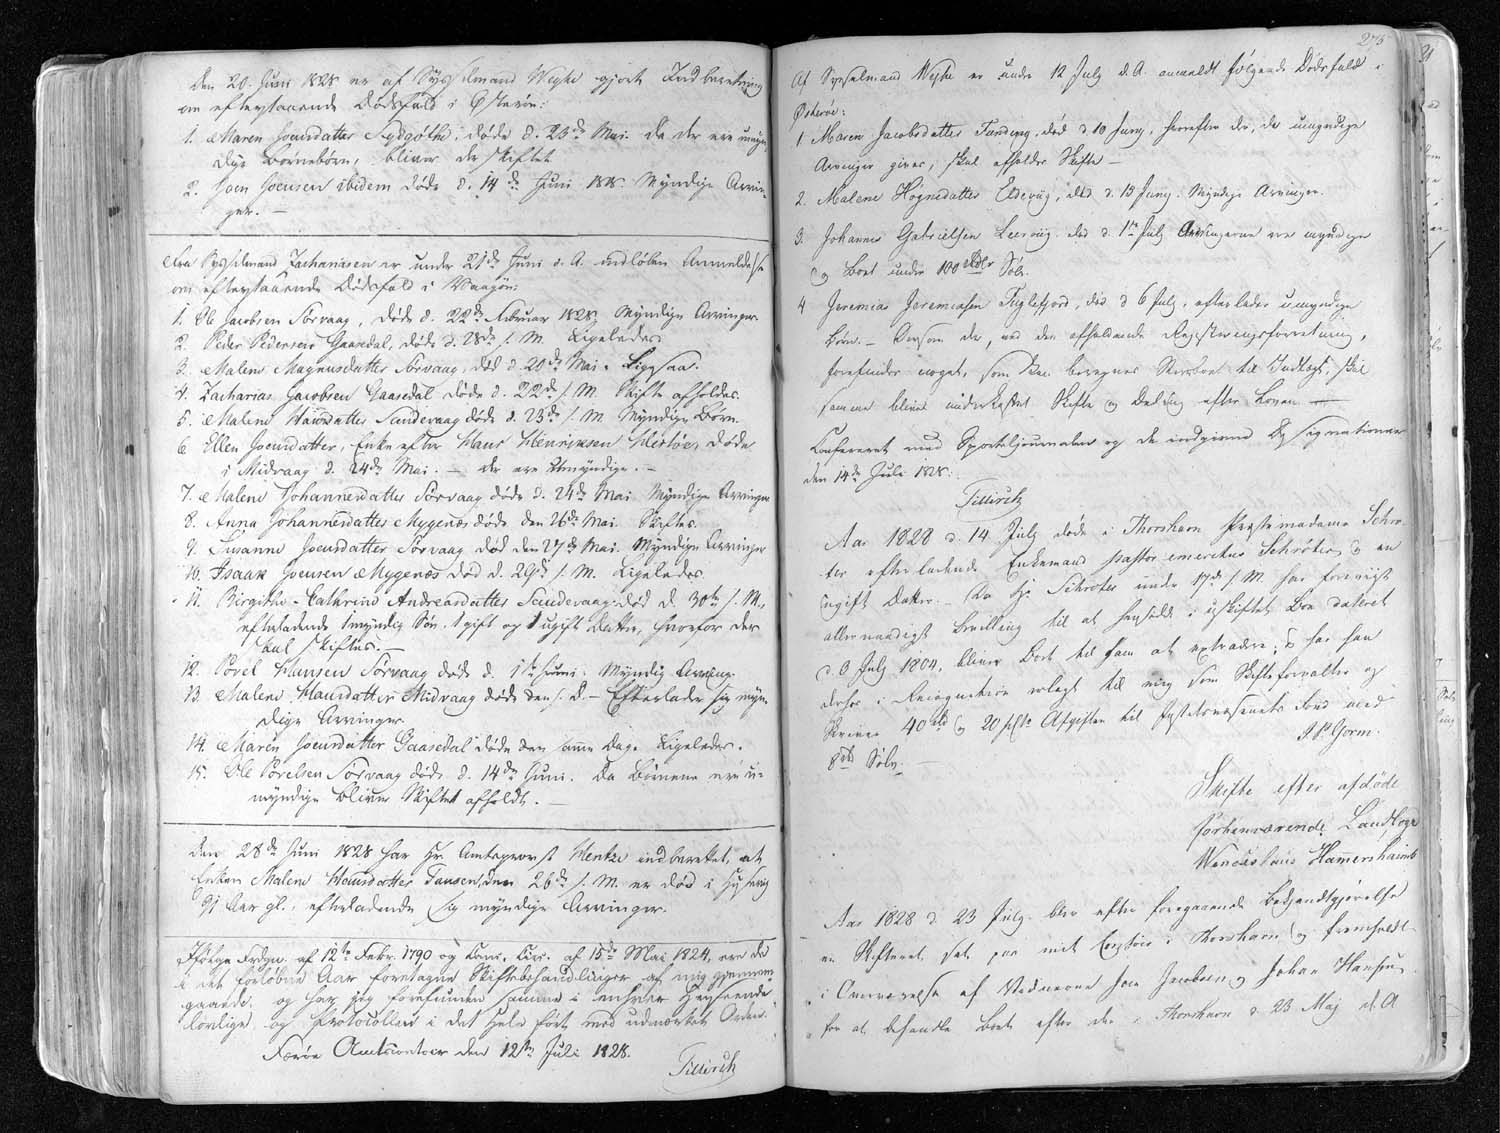 Den 20. Juni 1828 er af Sysselmand Weyhe gjort Indberetning
om efterstaaende Dødsfald i Østerøe:
1. Maren Joensdatter Sydgøthe, døde d. 23de Mai. Da der ere umyn-
dige Børnebørn, bliver der skiftet
2. Joen Joensen ibidem døde d. 14de Juni 1828. Myndige Arvin-
ger. —
Fra Sysselmand Zachariasen er under 21de Juni d. A. indløben Anmeldelse
om efterstaaende Dødsfald i Vaagøe:
1. Ole Jacobsen Sørvaag, døde d. 22de Februar 1828. Myndige Arvinger.
2. Peder Pedersen Gaasedal, døde d. 28de s. M. Ligeledes
3. Malene Magnusdatter Sørvaag, død d. 20de Mai. Ligesaa.
4. Zacharias Jacobsen Gaasedal døde d. 22de s. M. Skifte afholdes.
5. Malene Hansdatter Sandevaag døde d. 23de s. M. Myndige Børn.
6 Ellen Joensdatter, Enke efter Hans Henrichsen døde
i Midvaag d. 24de Mai. — der ere Umyndige. —
7. Malene Johannesdatter Sørvaag døde d. 24de Mai Myndige Arvinger
8. Anna Johannesdatter Mygenæs døde den 26de Mai. Skiftes.
9. Susanne Joensdatter Sørvaag død den 27de Mai. Myndige Arvinger
10. Isaak Joensen Mygenæs død d. 29de s. M. Ligeledes.
11. Birgithe Cathrine Andreasdatter Sandevaag død d. 30te s. M.,
efterladende 1 myndig Søn, 1 gift og 1 ugift Datter, hvorfor der
skal skiftes. —
12. Povel Hansen Sørvaag døde d. 1te Juni. Myndig Arving.
13. Malene Hansdatter Midvaag døde den s. D. — Efterlader sig myn-
dige Arvinger.
14. Maren Joensdatter Gaasedal døde den samme Dag. Ligeledes.
15. Ole Povelsen Sørvaag døde d. 14de Juni. Da Børnene ere u-
myndige bliver Skiftet afholdt. —
Den 28de Juni 1828 har Hr. Amtsprovst Hentze indberettet, at
Enken Malene Hansdatter Tausen, den 26de s. M. er død i
91 Aar gl., efterladende sig myndige Arvinger.
Ifølge Frdgn. af 12te Febr. 1790 og Canc. Circ. af 15de Mai 1824, ere de
i det forløbne Aar foretagne Skiftebehandlinger af mig gjennem-
gaaede, og har jeg forefunden samme i enhver Henseende
lovlige, og Protocollen i det Hele ført med udmærket Orden.
Færøe Amtscontoir den 12te Juli 1828.
Tillisch
275
Af Sysselmand Weyhe er under 12 July d. A. anmeldt følgende Dødsfald i
Østerøe:
1 Maren Jacobsdatter død d 10 Juny, hvorefter der, da umyndige
Arvinger gives, skal afholdes Skifte —
2. Malene Høgnesdatter Eldevig, død d. 13 Juny. Myndige Arvinger.
3. Johannes Gabrielsen død d. 1te July. Arvingerne ere myndige
og Boet under 100 Rbdlr Sølv.
4 Jeremias Jeremiasen Fuglefjord, død d 6 July, efterlader umyndige
Børn. — Dersom der, ved den afholdende Registeringsforretning,
forefindes noget, som kan beregnes Stervboet til Indtægt, skal
samme blive underkastet Skifte og Deling efter Loven —
Confereret med Sportuljournalen og de indgivne Designationer
den 14de Juli 1828.
Tillisch
Aar 1828 d. 14 July døde i Thorshavn Præstemadame Schrø-
ter efterladende Enkemand pastor emeritus Schrøter, og en
ugift Datter. — Da Hr. Schrøter under 17de s. M. har foreviist
allernaadigst Bevilling til at hensidde i uskiftet Boe dateret
d. 3 July 1804, bliver Boet til ham at extradere; og har han
derfor i Recognition erlagt til mig som Skifteforvalter og
Skriver 40 og 20 Afgiften til Justitsvæsenets Fond med
8 Sølv. —
Skifte efter afdøde
forhenværende Landfoge
Wenceslaus Hammershaimb
Aar 1828 d. 23 July blev efter foregaaende Bekjendtgjørelse
en Skifteret sat paa mit Contoir i Thorshavn og fremholdt
i Overværelse af Vidnerne Joen Jacobsen og Johan Hansen,
for at behandle Boet efter den i Thorshavn d. 23 Maj d. A